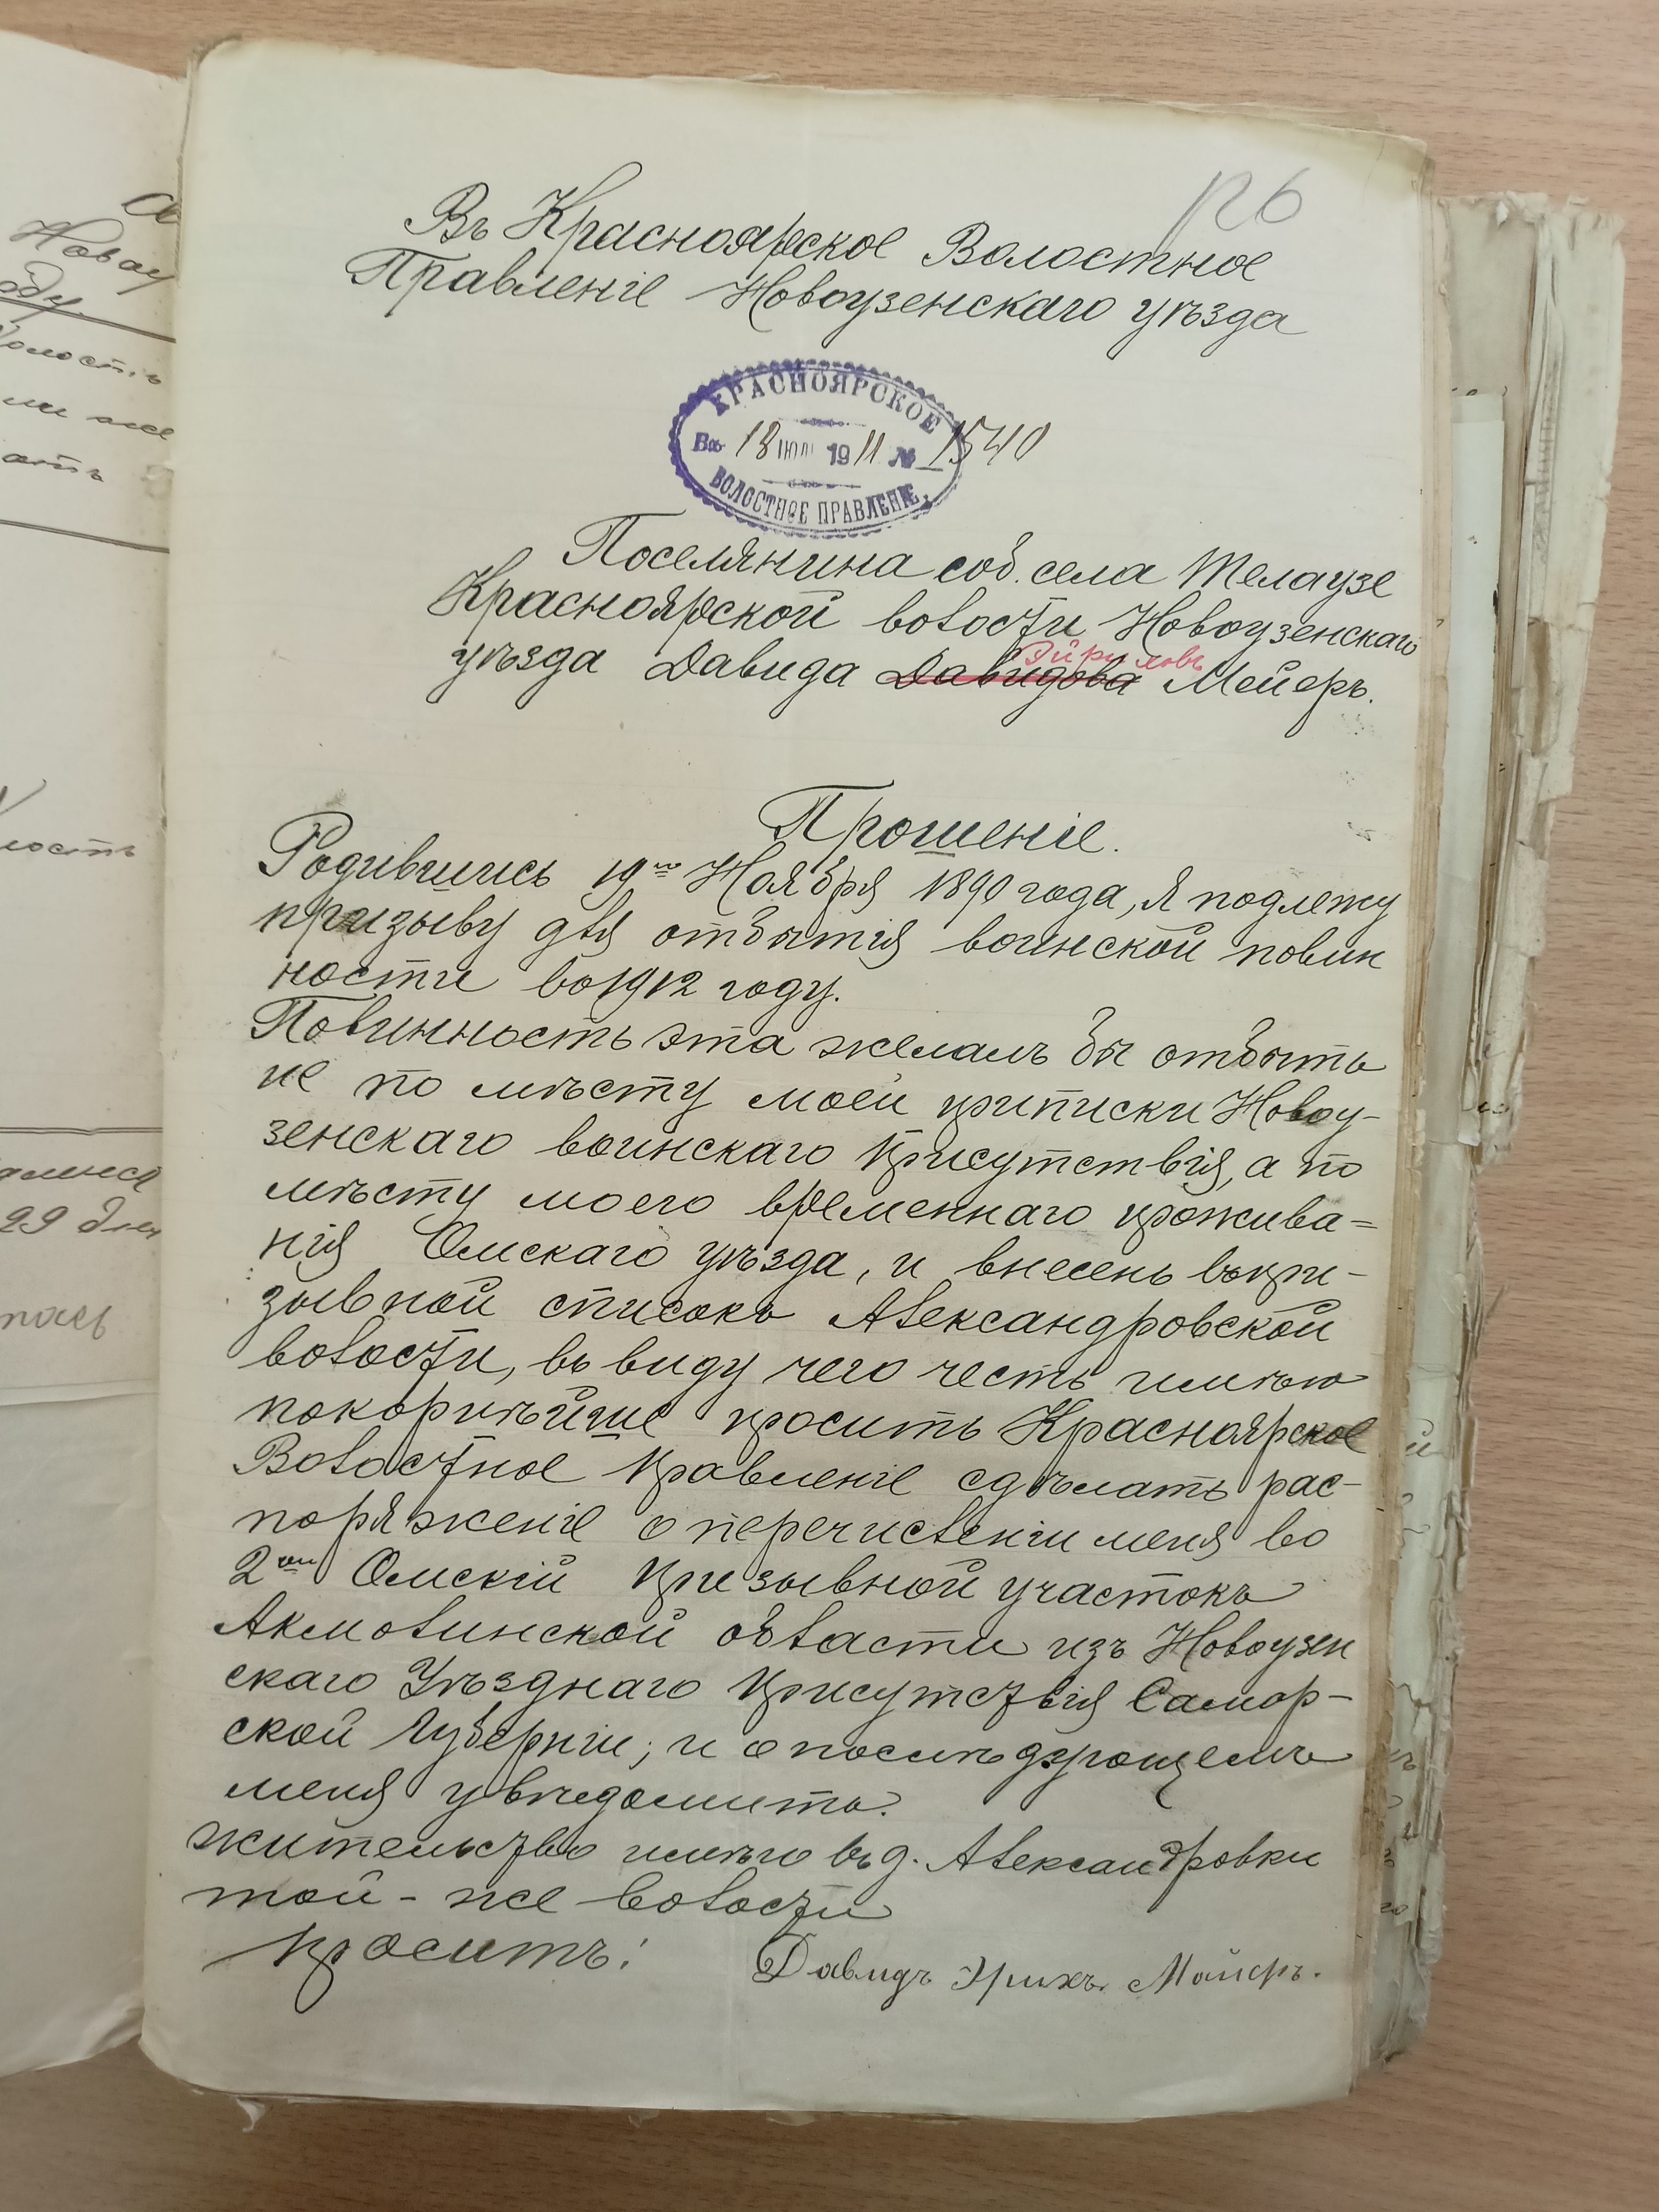 126
Въ Красноярское Волостное
Правленіе Новоузенскаго уѣзда
КРАСНОЯРСКОЕ
Вх. 18 ІЮЛ 1911 № 1540
ВОЛОСТНОЕ ПРАВЛЕНІЕ.
Поселянина соб. села Телаузе
Красноярской волости Новоузенскаго
уѣзда Давида Давидова Мейеръ.
Прошеніе.
Родившись 19го Ноября 1890 года, я подлежу
призыву для отбытія воинской повин
ности во 1912 году.
Повинность эта желалъ бы отбыть
не по мѣсту моей приписки Новоу-
зенскаго воинскаго присутствія, а по
мѣсту моего временнаго прожива=
нія Омскаго уѣзда, и внесенъ въ при-
зывной списокъ Александровской
волости, въ виду чего честь имѣю
покорнѣйше просить Красноярское
Волостное Правленіе сдѣлать рас-
поряженіе о перечисленіи меня во
2ой Омскій призывной участокъ
Акмолинской области изъ Новоузен
скаго Уѣзднаго присутствія Самар-
ской Губерніи; и о послѣдующемъ
меня увѣдомить.
жительство имѣю въ д. Александровки
той-же волости
Проситъ! Давидъ Майеръ.
Новоу
волость
29 дня